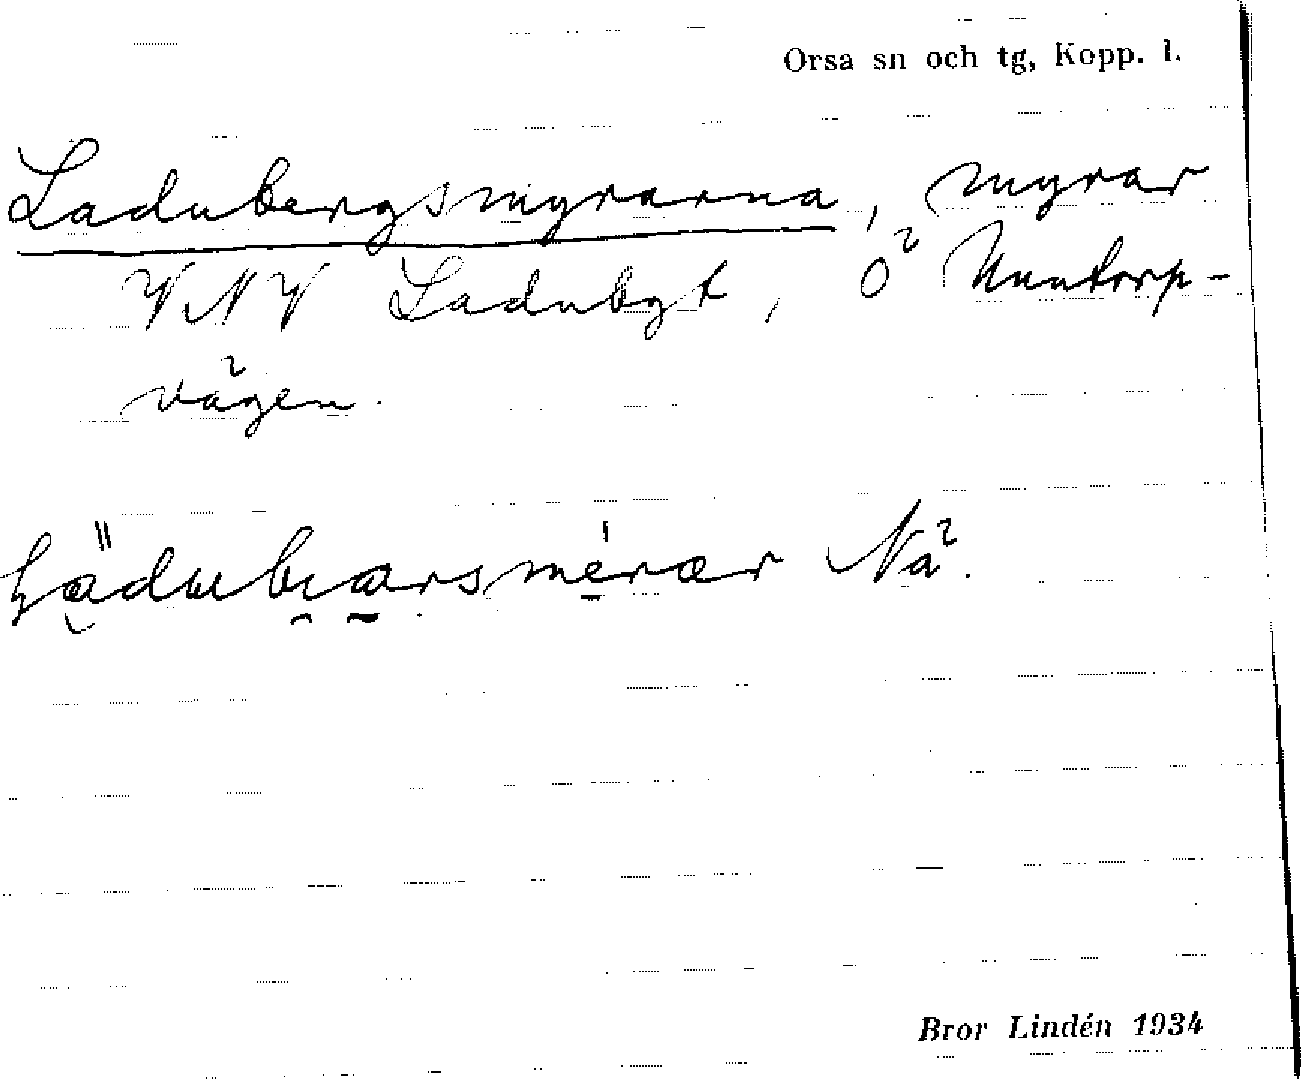 Orsa sn och tg, Kopp. l.
Ladubergsmyrarna, myrar
VNV Ladubgt, Ö Nuntorp-
vägen.
Nä.
Bror Lindén 1934